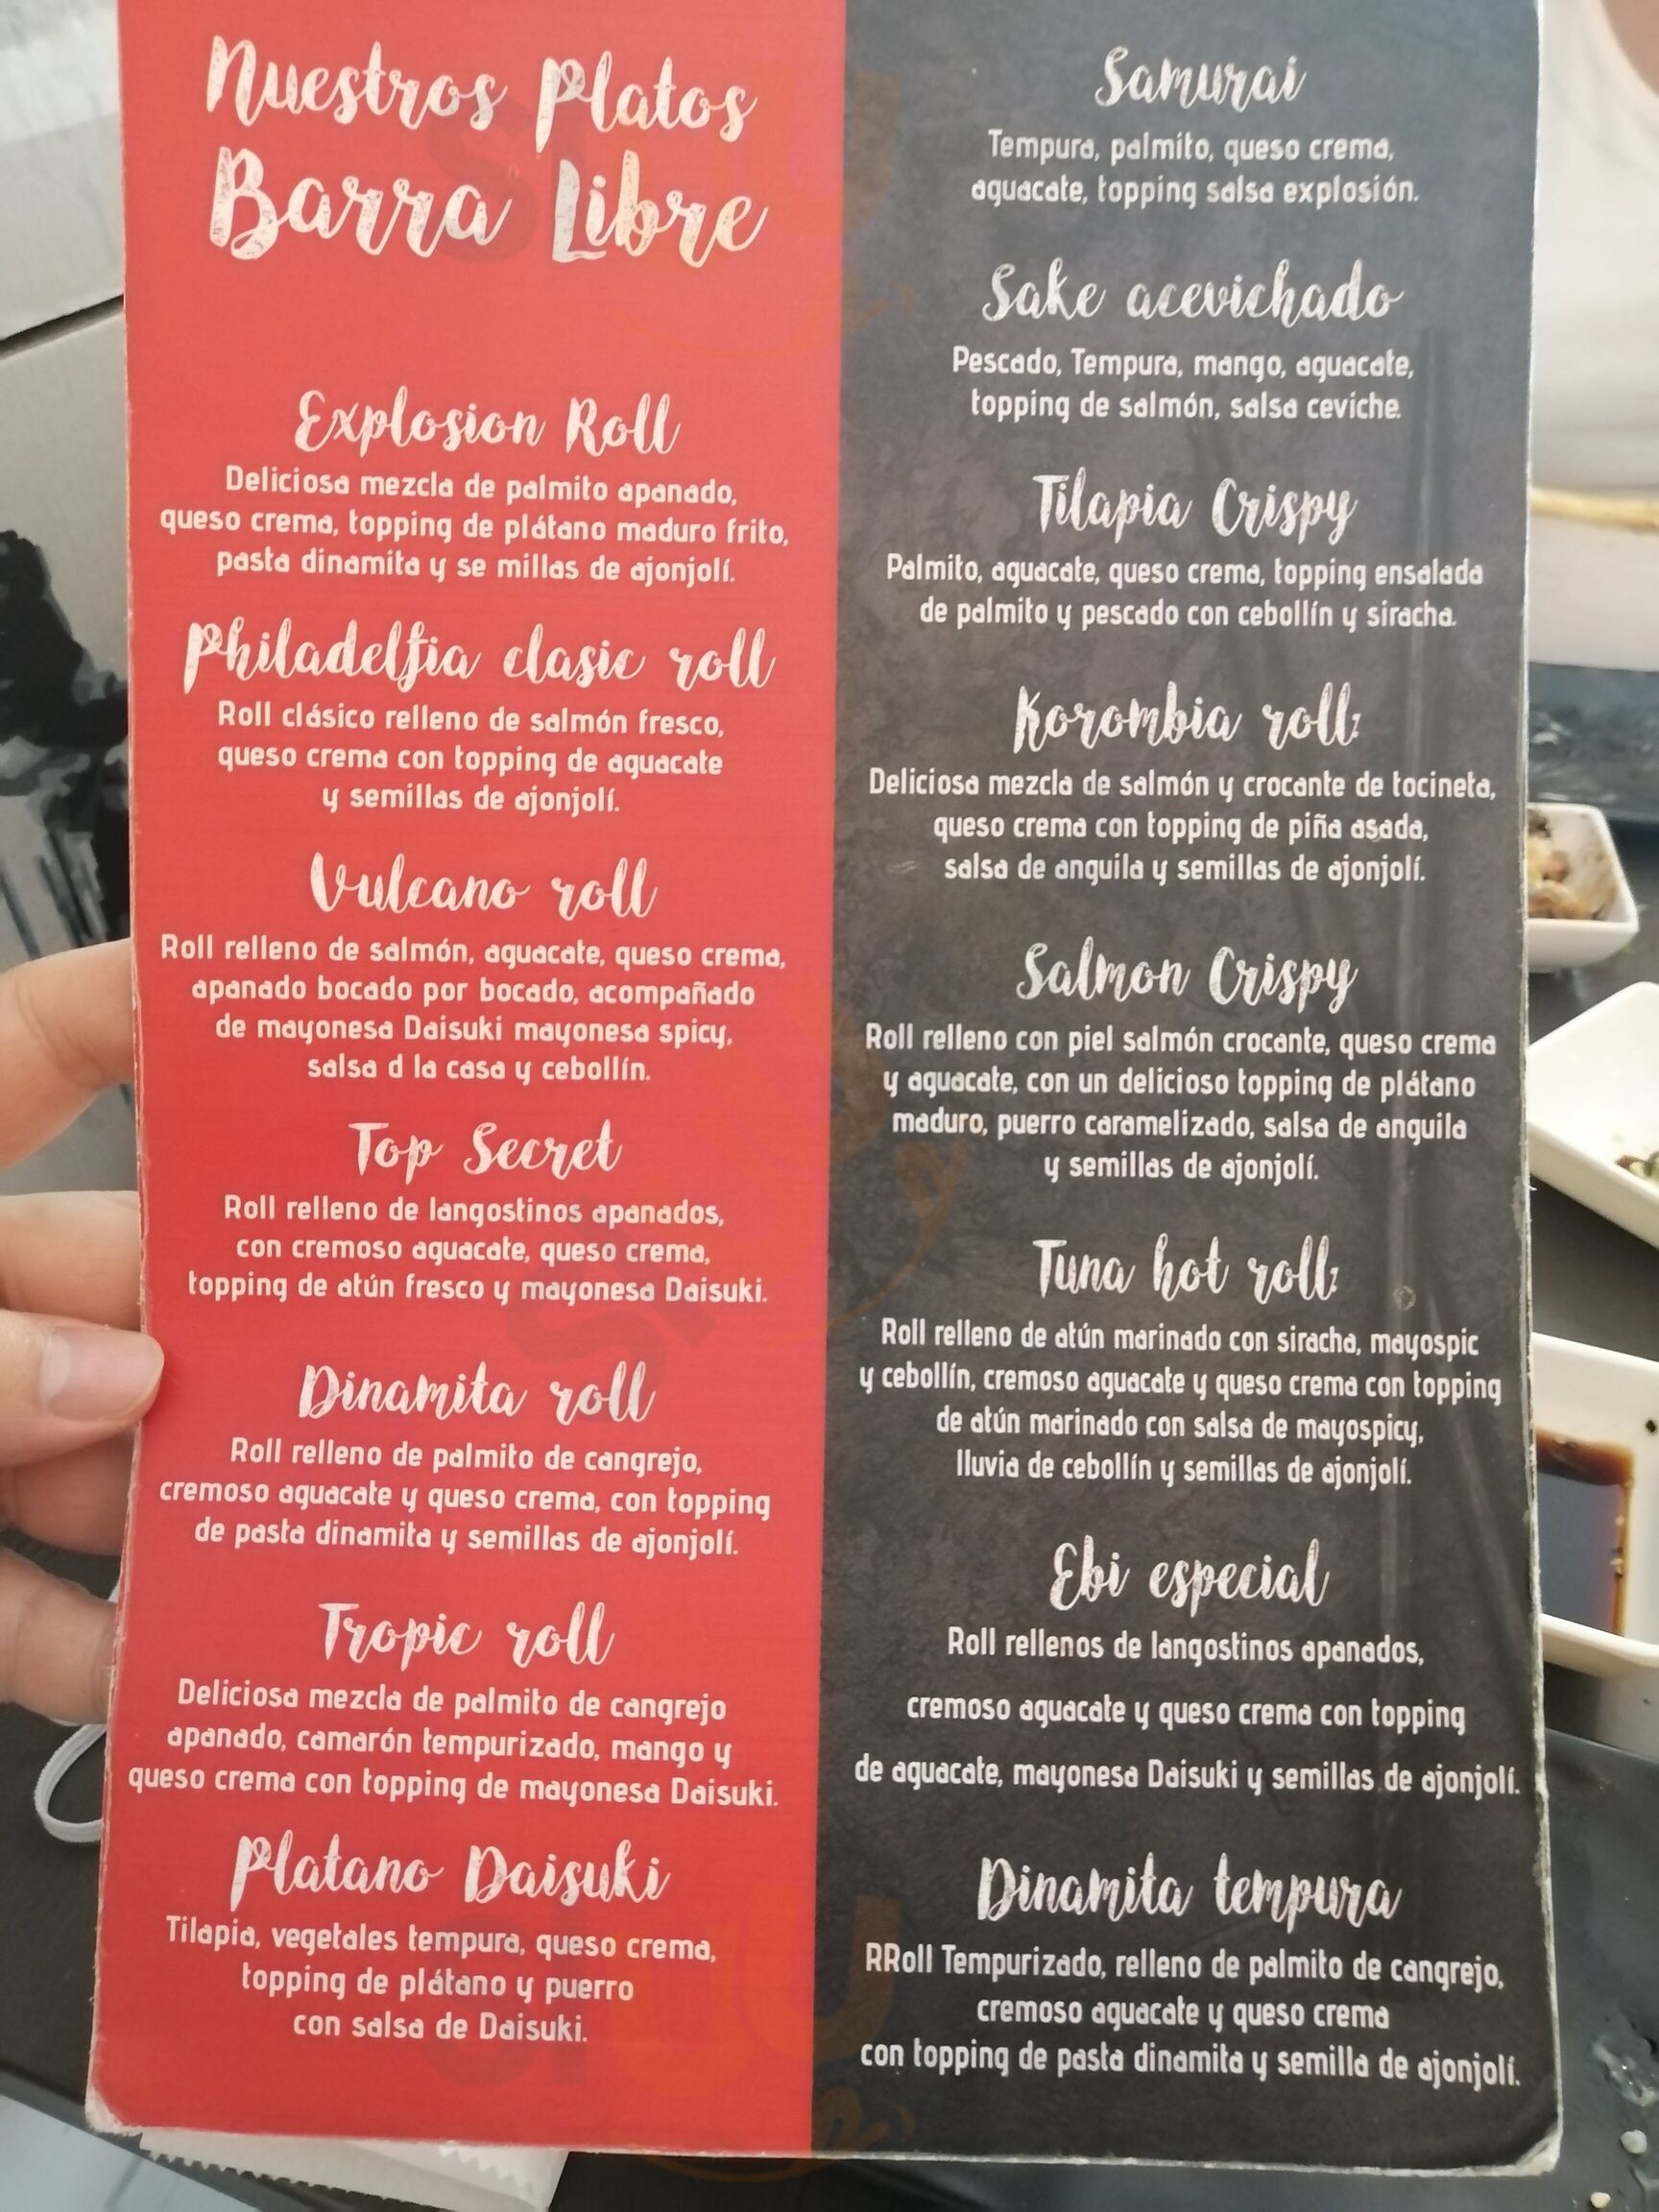 Nuestros Platos
Barra Libre
Explosion Roll
Deliciosa mezcla de palmito apanado,
queso crema, topping de plátano maduro frito,
pasta dinamita y se millas de ajonjolí.
Philadelfia clasic roll
Roll clásico relleno de salmón fresco,
queso crema con topping de aguacate
y semillas de ajonjolí.
Vulcano roll
Roll relleno de salmón, aguacate, queso crema,
apanado bocado por bocado, acompañado
de mayonesa Daisuki mayonesa spicy,
salsa d la casa y cebollín.
Top Secret
Roll relleno de langostinos apanados,
con cremoso aguacate, queso crema,
topping de atún fresco y mayonesa Daisuki.
Dinamita roll
Roll relleno de palmito de cangrejo,
cremoso aguacate y queso crema, con topping
de pasta dinamita y semillas de ajonjolí.
Tropic roll
Deliciosa mezcla de palmito de cangrejo
apanado, camarón tempurizado, mango y
queso crema con topping de mayonesa Daisuki.
Platano Daisuki
Tilapia, vegetales tempura, queso crema,
topping de plátano y puerro
con salsa de Daisuki.
Samurai
Tempura, palmito, queso crema,
aguacate, topping salsa explosión.
Sake acevichado
Pescado, Tempura, mango, aguacate,
topping de salmón, salsa ceviche.
Tilapia Crispy
Palmito, aguacate, queso crema, topping ensalada
de palmito y pescado con cebollín y siracha.
Korombia roll:
Deliciosa mezcla de salmón y crocante de tocineta,
queso crema con topping de piña asada,
salsa de anguila y semillas de ajonjolí.
Salmon Crispy
Roll relleno con piel salmón crocante, queso crema
y aguacate, con un delicioso topping de plátano
maduro, puerro caramelizado, salsa de anguila
y semillas de ajonjolí.
Tuna hot roll:
Roll relleno de atún marinado con siracha, mayospic
y cebollín, cremoso aguacate y queso crema con topping
de atún marinado con salsa de mayospicy,
lluvia de cebollín y semillas de ajonjolí.
Ebi especial
Roll rellenos de langostinos apanados,
cremoso aguacate y queso crema con topping
de aguacate, mayonesa Daisuki y semillas de ajonjolí.
Dinamita tempura
RRoll Tempurizado, relleno de palmito de cangrejo,
cremoso aguacate y queso crema
con topping de pasta dinamita y semilla de ajonjolí.